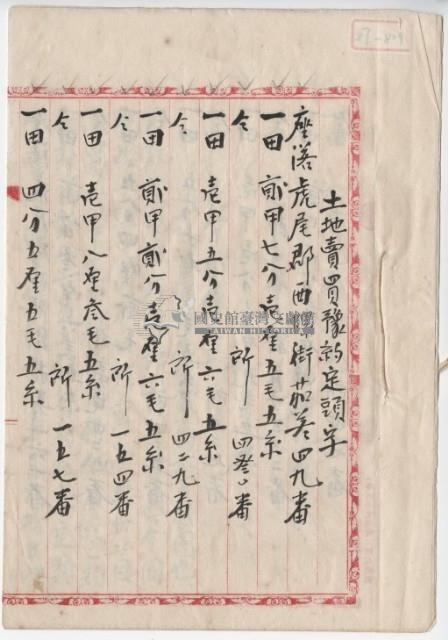 土地賣買豫約定頭字
座落虎尾郡西螺街茄苳四九番
一田 貳甲七分壹厘五毛五糸
仝 所 四四八番
一田 壹甲五分壹厘六毛五糸
仝 所 四二九番
一田 貳甲貳分壹厘六毛五糸
仝 所 一五四番
一田 壹甲八厘叁毛五糸
仝 所 一五七番
一田 四分五厘五毛五糸
國史館臺灣文獻館
TAIWAN HISTORICA